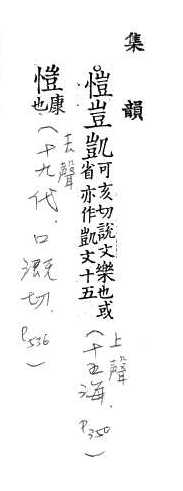 集韻
愷豈凱可亥切說文樂也或省亦作凱文十五(上聲十五海.P350)
愷康也(去聲十九代.口溉切.P536)